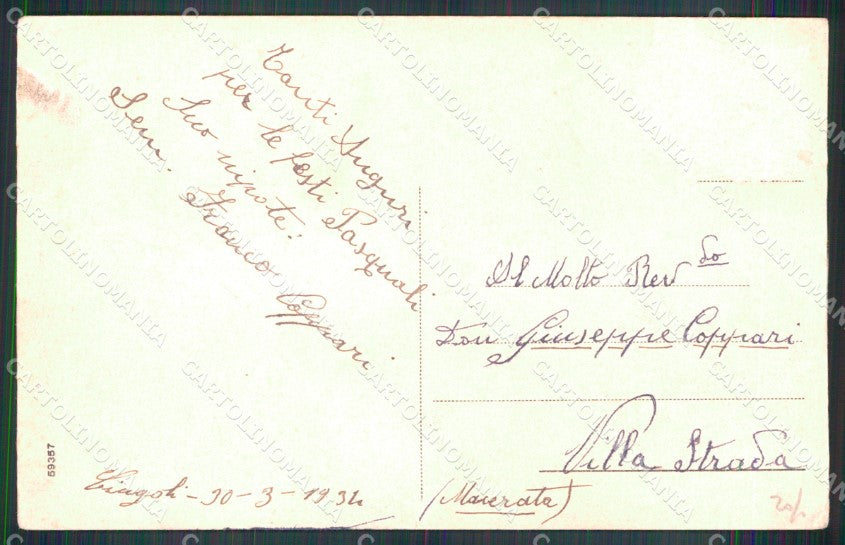 Tanti Auguri
per le festi Pasquali
Suo nipote:
Sem. Franco Coppari
Cingoli - 30 - 3 - 1934
Al Molto Rev do
Don Giuseppe Coppari
Villa Strada
(Macerata)
59357
CARTOLINOMANIA